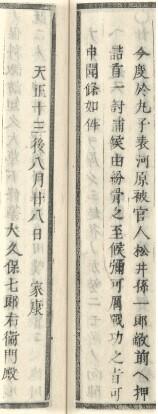 今度於丸子表河原被官人松井孫一郎敵前ヘ押
詰首一討補候由紛骨之至候彌可属戦功之旨可
申聞條如件
天正十三後八月廿八日　家康
大久保七郎右衛門殿